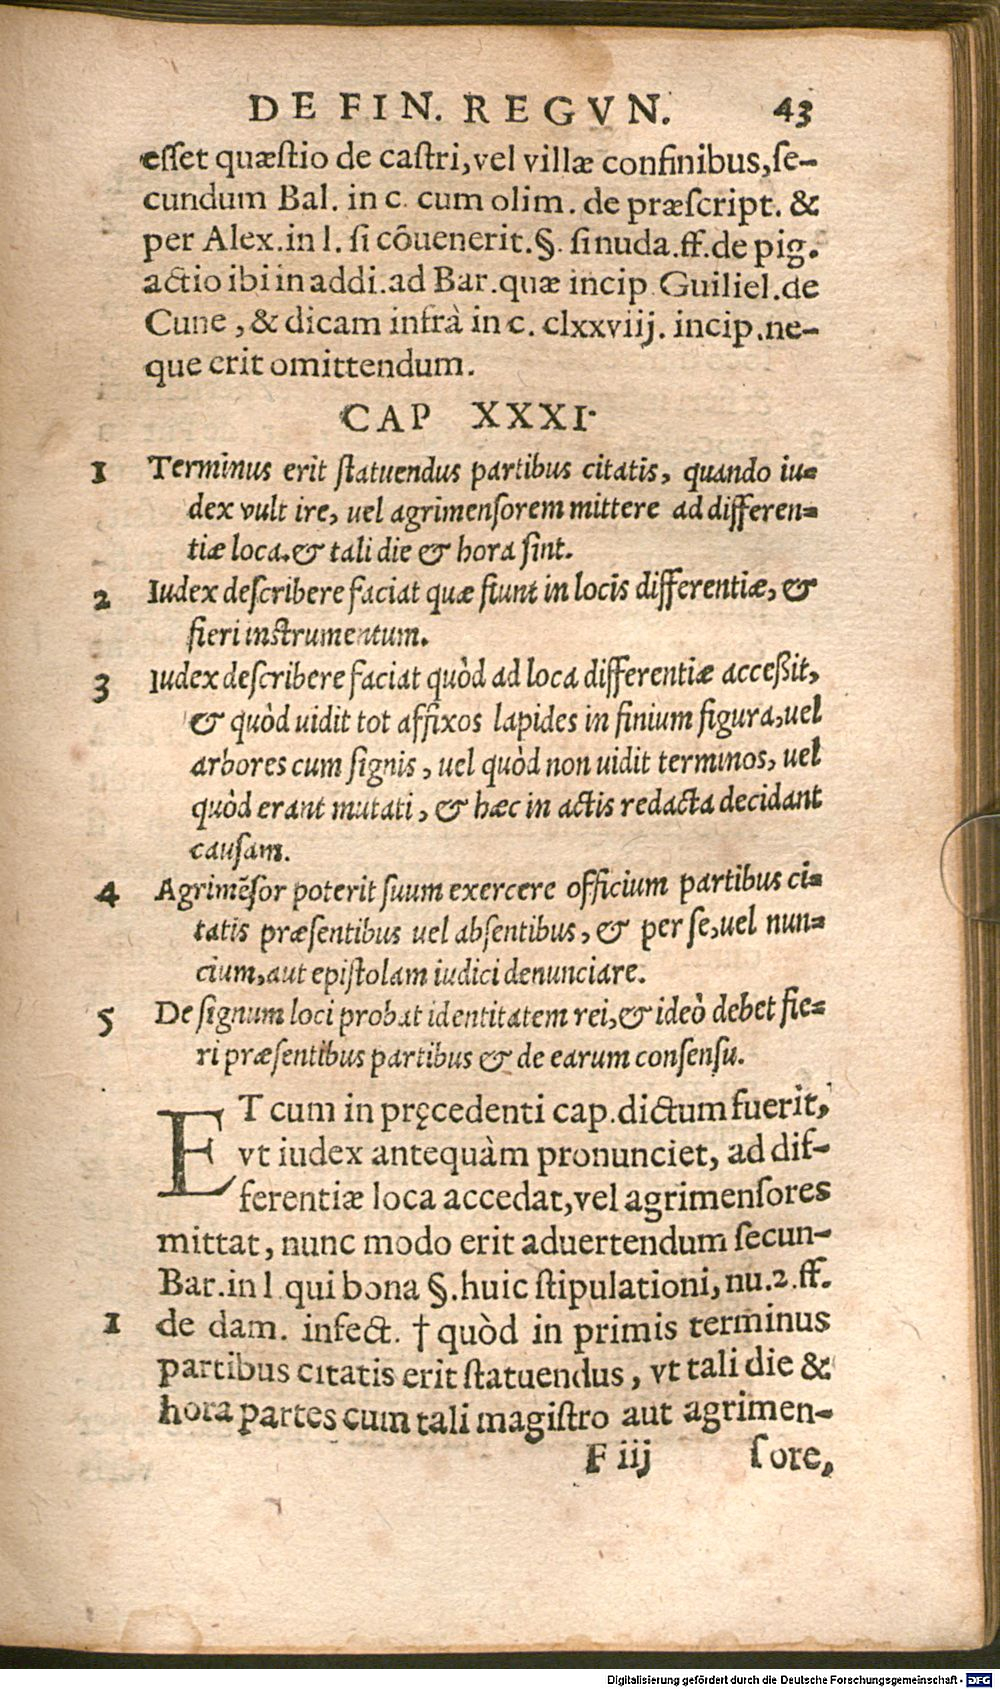 DE FIN. REGVN. 43
esset quæstio de castri, vel villæ confinibus, se-
cundum Bal. in c. cum olim. de præscript. &
per Alex. in l. si cõuenerit. §. si nuda. ff. de pig.
actio ibi in addi. ad Bar. quæ incip. Guiliel. de
Cune, & dicam infrà in c. clxxviij. incip. ne-
que erit omittendum.
CAP XXXI.
1 Terminus erit statuendus partibus citatis, quando iu-
dex vult ire, uel agrimensorem mittere ad differen-
tiæ loca. & tali die & hora sint.
2 Iudex describere faciat quæ fiunt in locis differentiæ, &
fieri instrumentum.
3 Iudex describere faciat quòd ad loca differentiæ acceßit,
& quòd uidit tot affixos lapides in finium figura, uel
arbores cum signis, uel quòd non uidit terminos, uel
quòd erant mutati, & hæc in actis redacta decidant
causam.
4 Agrimẽsor poterit suum exercere officium partibus ci-
tatis præsentibus uel absentibus, & per se, uel nun-
cium, aut epistolam iudici denunciare.
5 De signum loci probat identitatem rei, & ideò debet fie-
ri præsentibus partibus & de earum consensu.
ET cum in pręcedenti cap. dictum fuerit,
vt iudex antequàm pronunciet, ad dif-
ferentiæ loca accedat, vel agrimensores
mittat, nunc modo erit aduertendum secun-
Bar. in l qui bona §. huic stipulationi, nu. 2. ff.
1 de dam. infect. † quòd in primis terminus
partibus citatis erit statuendus, vt tali die &
hora partes cum tali magistro aut agrimen-
F iij sore,
Digitalisierung gefördert durch die Deutsche Forschungsgemeinschaft - DFG